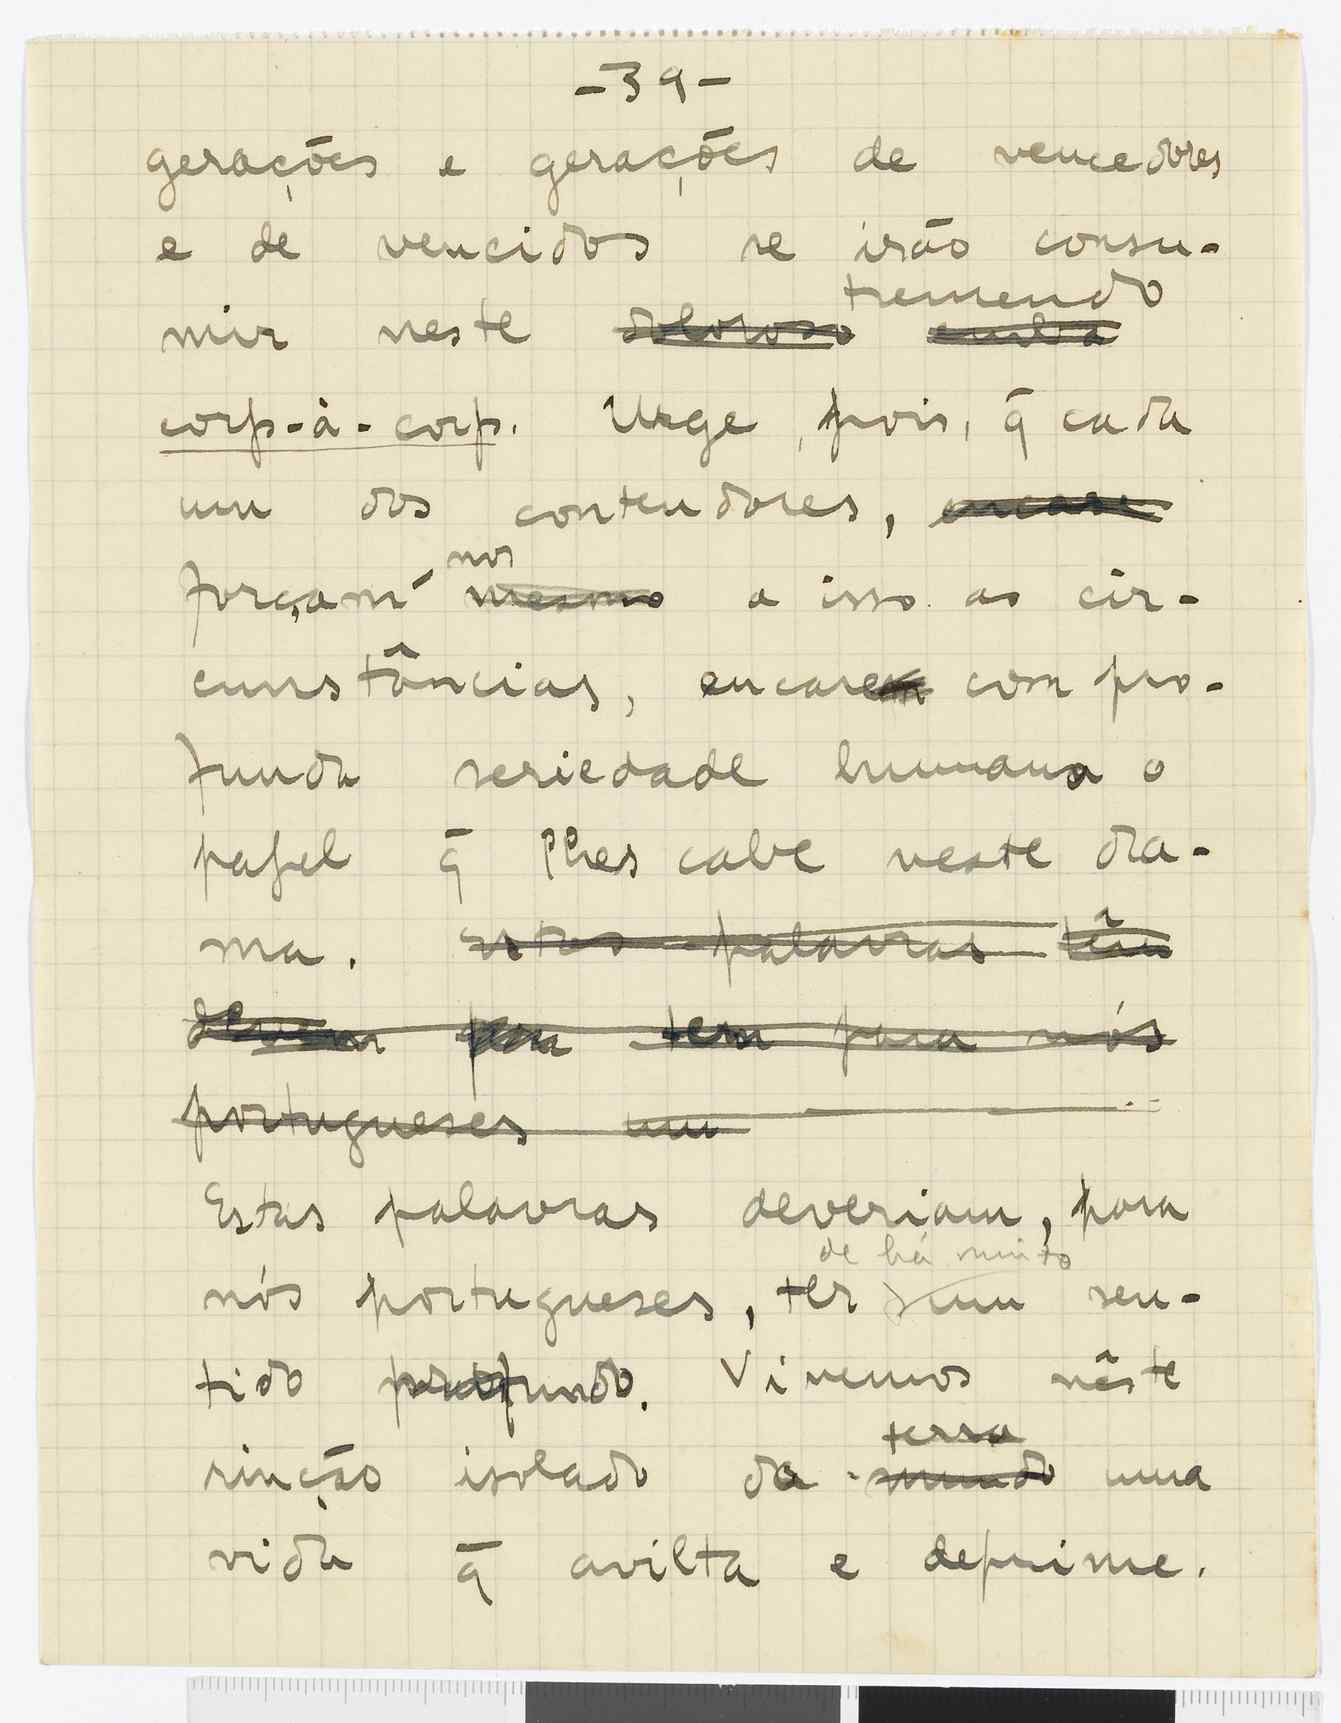 -39-
gerações e gerações de vencedores
e de vencidos se irão consu-
tremendo
mir neste doloroso
corp-à-corp. Urge, pois, q̄ cada
um dos contendores, encare
nos
forçam mesmo a isso as cir-
cunstâncias, encare com pro-
funda seriedade humana o
papel q̄ lhes cabe neste dra-
ma. Estas palavras têm
devem tem para nós
portugueses um
Estas palavras deveriam, para
de há muito
nós portugueses, ter um sen-
tido profundo. Vivemos nêste
terra
rincão isolado da mundo uma
vida q̄ avilta e deprime.